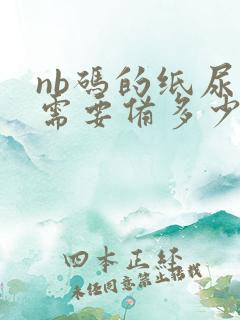 nb码的纸尿
需要备多少
四本正经
未经同意禁止搭载